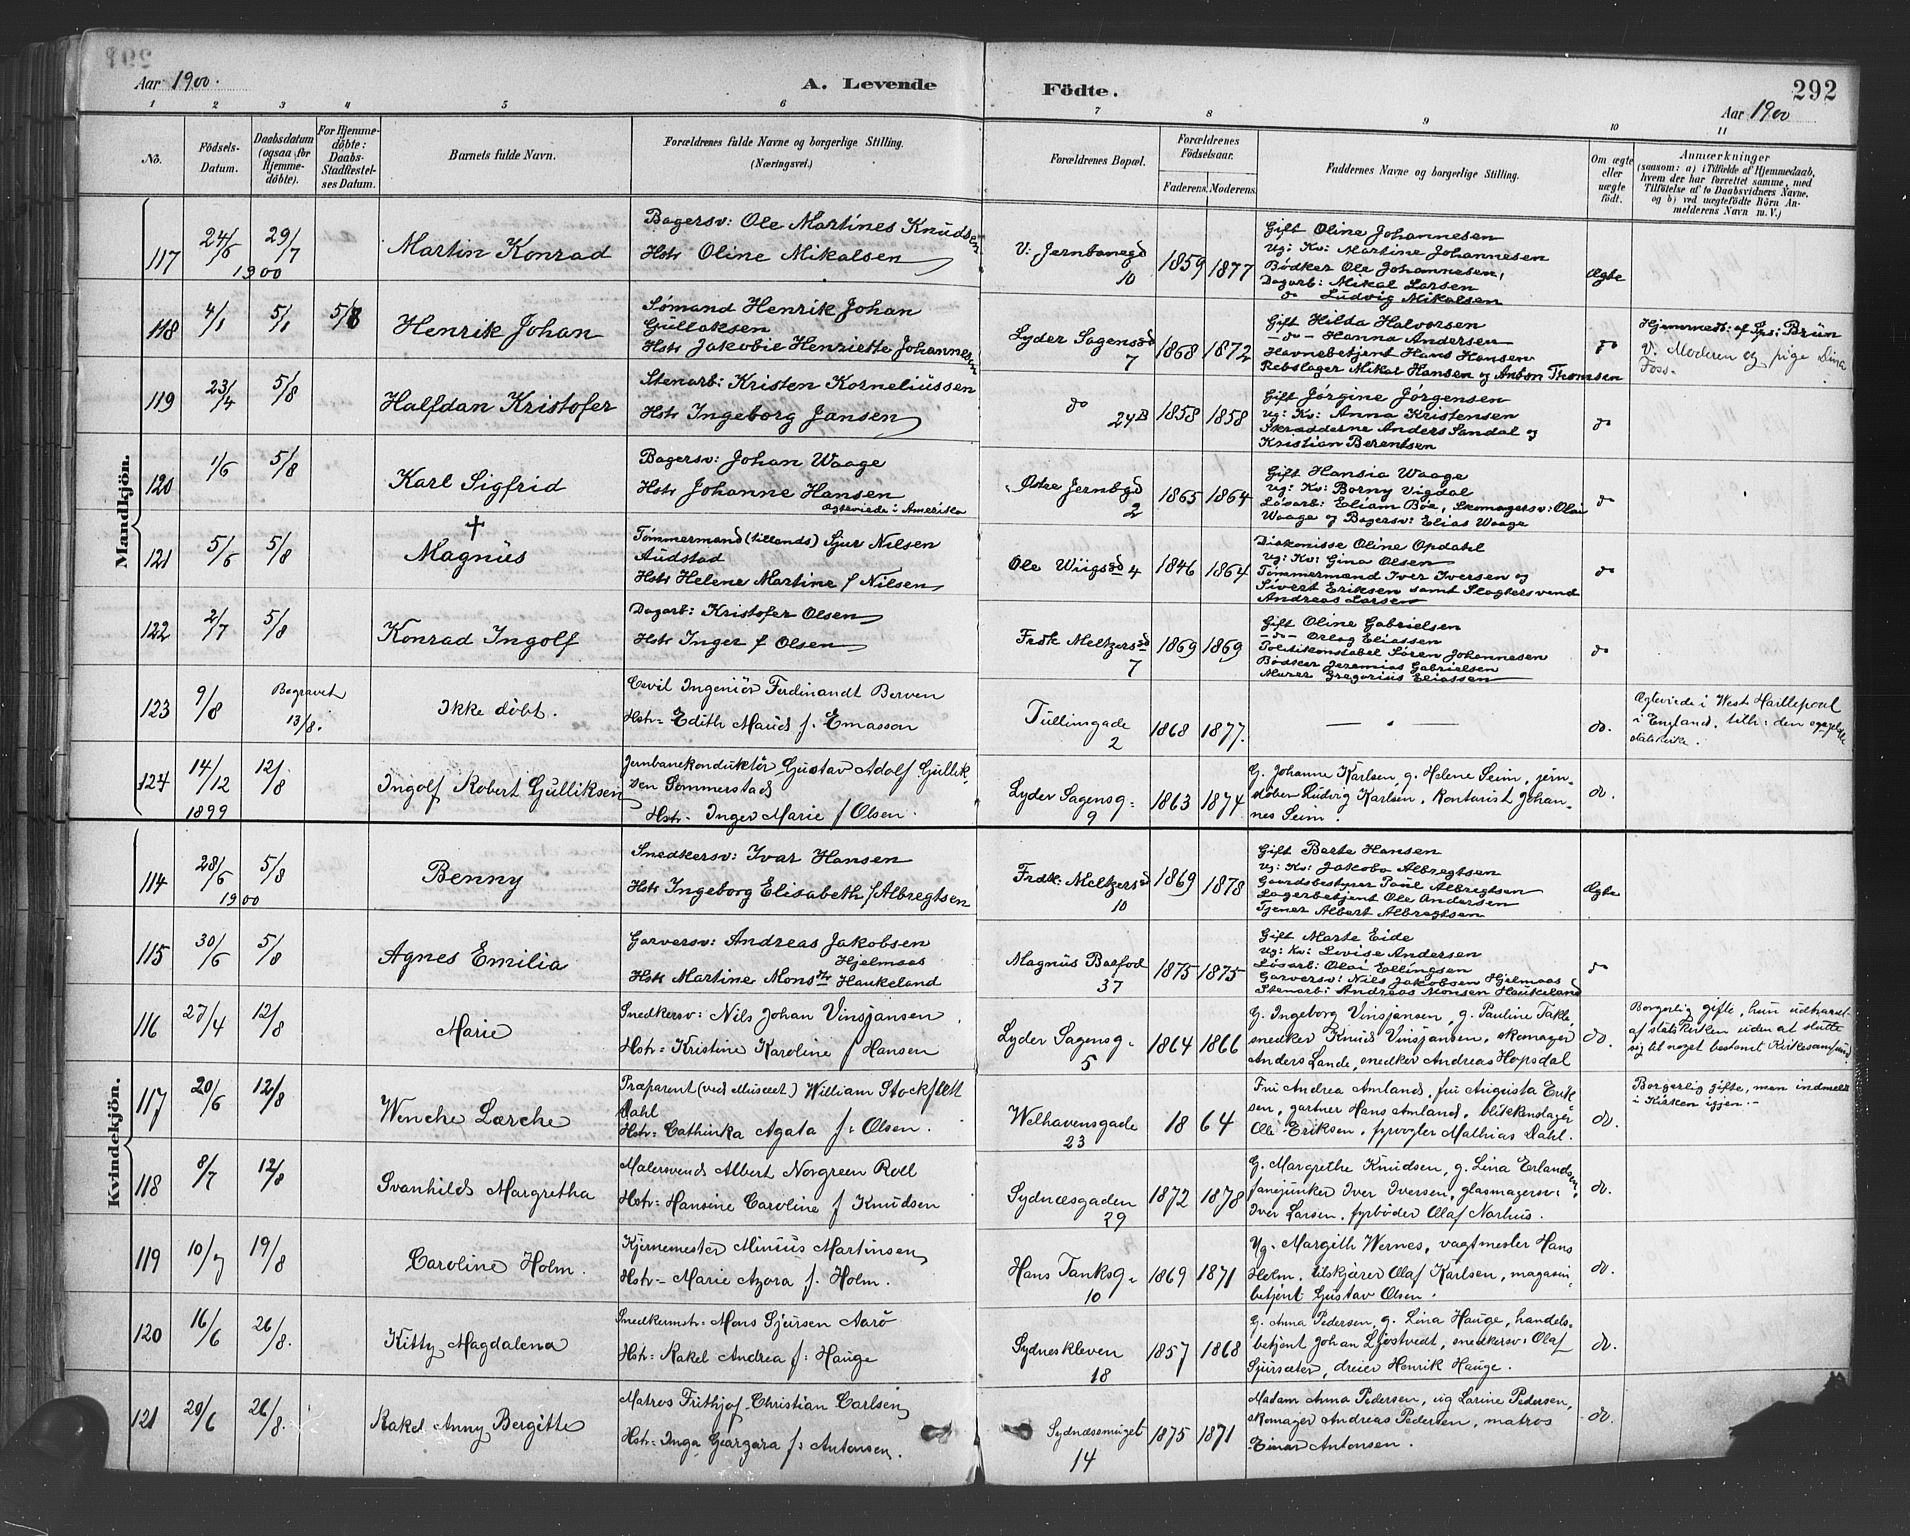 292
Aar 1900.
A. Levende Födte.
Aar 1900
1 2 3 4 5 6 7 8 9 10 11
No.
Födsels-Datum.
Daabsdatum (ogsaa for Hjemme-döbte).
For Hjemme-döbte: Daabs-Stadfæstel-ses Datum.
Barnets fulde Navn.
Forældrenes fulde Navne og borgerlige Stilling.
(Næringsvei.)
Forældrenes Bopæl.
Forældrenes Födselsaar.
Faderens. Moderens.
Faddernes Navne og borgerlige Stilling.
Om ægte eller uægte födt.
Anmærkninger
(saasom: a) i Tilfælde af Hjemmedaab, hvem der har forrettet samme, med Tilföielse af to Daabsvidners Navne, og b) ved uægtefödte Börn An-melderens Navn m. V.)
Mandkjön.
117 24/6 1900 29/7 Martin Konrad
Bagersv: Ole Martines Knudsen
Hstr Oline Mikalsen
V: Jernbanegd 10 1859 1877
Gift Oline Johannesen
Ug: Kv: Martine Johannesen
Bödker Ole Johannesen,
Dagarb: Mikal Larsen
do Ludvig Mikalsen
Ægte
118 4/1 5/1 5/8 Henrik Johan
Sømand Henrik Johan
Gullaksen
Hstr Jakobie Henriette Johannesen
Lyder Sagensgd 7 1868 1872
Gift Hilda Halvorsen
-do- Hanna Andersen
Havnebetjent Hans Hansen
Rebslager Mikal Hansen og Anton Thomsen
do
Hjemmedb: af Sps: Brun
V. Moderen og pige Dina
Foss.
119 23/4 5/8 Halfdan Kristofer
Stenarb: Kristen Korneliussen
Hstr Ingeborg Jansen
do 24B 1858 1858
Gift Jörgine Jörgensen
Ug: Kv: Anna Kristensen
Skrædderne Anders Sandal og
Kristian Berentsen
do
120 1/6 5/8 Karl Sigfrid
Bagersv: Johan Waage
Hstr Johanne Hansen
Ægteviede i Amerika
Østre Jernbgd 2 1865 1864
Gift Hansia Waage
Ug: Kv: Borny Vigdal
Løsarb: Eliam Bøe, Skomagersv: Olai
Waage og Bagersv: Elias Waage
do
121 5/6 5/8 † Magnus
Tømmermand (tillands) Sjur Nilsen
Audstad
Hstr Helene Martine f Nilsen
Ole Wiigsgd 4 1846 1864
Diakonisse Oline Opdahl
Ug: Kv: Gina Olsen
Tømmermænd Iver Iversen og
Sivert Eriksen samt Slagtersvend
Andreas Larsen
do
122 2/7 5/8 Konrad Ingolf
Dagarb: Kristofer Olsen
Hstr Inger f Olsen
Frdk Meltzersgd 7 1869 1869
Gift Oline Gabrielsen
-do- Orlog Eliassen
Politikonstabel Søren Johannesen
Bødker Jeremias Gabrielsen
Murer Gregorius Eliassen
do
123 9/8 Begravet 13/8. Ikke döbt.
Civil Ingeniör Ferdinandt Berven
Hstr- Edith Maud f. Emasson
Tullinsgade 2 1868 1877.
— " —
do.
Ægteviede i West Haillepoul
i England, tilh: den
statskirke.
124 14/12 1899 12/8 Ingolf Robert Gulliksen
Jernbanekonduktör Gustav Adolf Gullik
sen Sommerstad
Hstr- Inger Marie f Olsen.
Lyder Sagensg- 9 1863 1874
G. Johanne Karlsen, g. Helene Seim, jern-
döber Ludvig Karlsen, Kontorist Johan-
nes Seim.
do.
Kvindekjön.
114 28/6 1900 5/8 Benny
Snedkersv: Ivar Hansen
Hstr Ingeborg Elisabeth f Albregtsen
Frdk: Meltzersgd 10 1869 1878
Gift Berte Hansen
Ug: Kv: Jakoba Albregtsen
Gaardsbestyrer Paul Albregtsen
Lagerbetjent Ole Andersen
Tjener Albert Albregtsen
Ægte
115 30/6 5/8 Agnes Emilia
Garversv: Andreas Jakobsen
Hjelmaas
Hstr Martine Monsdr Haukeland
Magnus Barfod 37 1875 1875
Gift Marte Eide
Ug: Kv: Lovise Andersen
Løsarb: Olai Ellingsen
Garversv: Nils Jakobsen Hjelmaas
Stenarb: Andreas Monsen Haukeland
do
116 27/4 12/8 Marie
Snedkersv: Nils Johan Vinsjansen
Hstr- Kristine Karoline f Hansen
Lyder Sagensg- 5 1864 1866
G. Ingeborg Vinsjansen, g. Pauline Takle
snedker Knud Vinsjansen, skomager
Anders Lande, snedker Andreas Hopsdal
do.
Borgerlig gifte, hun udtraadt
af statskirken uden at slutte
sig til noget bestemt Kirkesamfund
117 20/6 12/8 Wenche Lærche
Præparent (ved Museet) William Stockflett
Dahl
Hstr- Cathinka Agata f. Olsen.
Welhavensgade 23 1864
Fru Andrea Amland, fru Augusta Erik
sen, gartner Hans Amland, blikkenslager
Ole Eriksen, fyrvogter Mathias Dahl.
do.
Borgerlig gifte, man indmeldt
i Kirken igjen.-
118 8/7 12/8 Svanhild Margretha
Malersvend Albert Norgreen Roll
Hstr- Hansine Caroline f Knudsen
Sydnæsgaden 29 1872 1878
G. Margrethe Knudsen, g. Lina Erlandsen,
fanejunker Iver Iversen, glasmagersv:
Iver Larsen, fyrböder Olaf Narhus.
do.
119 10/7 19/8 Caroline Holm.
Kjernemester Minius Martinsen
Hstr- Marie Azora f. Holm.
Hans Tanksg- 10 1869 1871
Ug. Margith Wernes, vagtmester Hans
Holm, tilskjærer Olaf Karlsen, magasin-
betjent Gustav Olsen.
do.
120 16/6 26/8. Kitty Magdalena
Snedkermstr- Mons Sjursen Aarö
Hstr- Rakel Andrea f. Hauge
Sydneskleven 18 1857 1868
G. Anna Pedersen, g. Lina Hauge, handels-
betjent Johan Ljostvedt, snedkersv: Olaf
Sjursæter, dreier Henrik Hauge.
do.
121 20/6 26/8. Rakel Anny Bergitte
Matros Frithjof Christian Carlsen
Hstr- Inga Geargara f. Antonsen.
Sydnæsmuget 14 1875 1871
Madam Anna Pedersen, ug Larine Pedersen,
skomager Andreas Pedersen, matros
Einar Antonsen.
do.